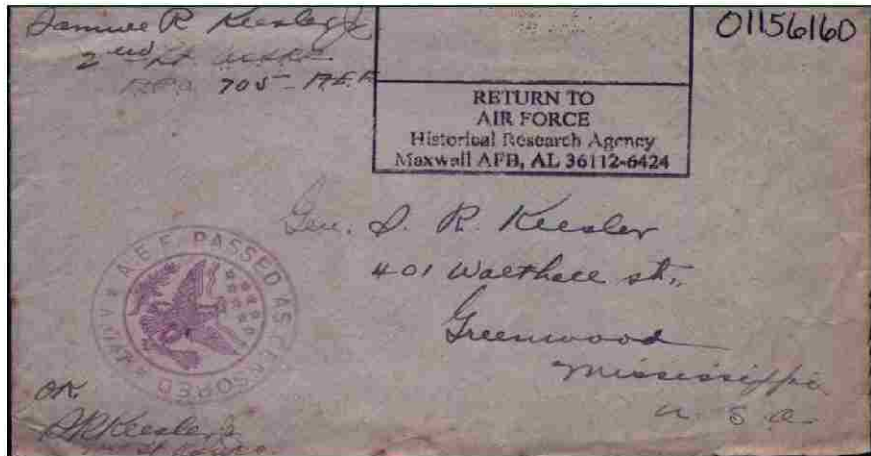 Samuel R Keesler Jr
2nd Lt
705 - A.E.F.
01156160
RETURN TO
AIR FORCE
Historical Research Agency
Maxwall AFB, AL 36112-6424
Gen. S. R. Keesler
401 Walthall st.,
Greenwood
Mississippi
U S A
A.E.F. PASSED AS CENSORED
OK
SRKeesler Jr